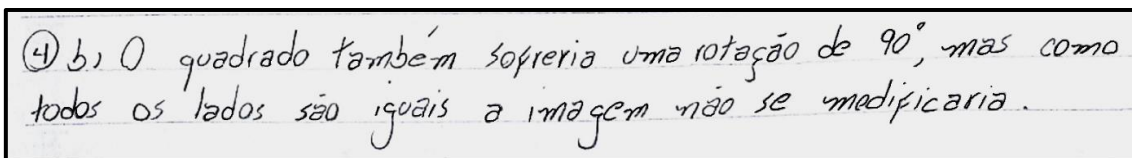 ④ b) O quadrado também sofreria uma rotação de 90°, mas como
todos os lados são iguais a imagem não se modificaria.